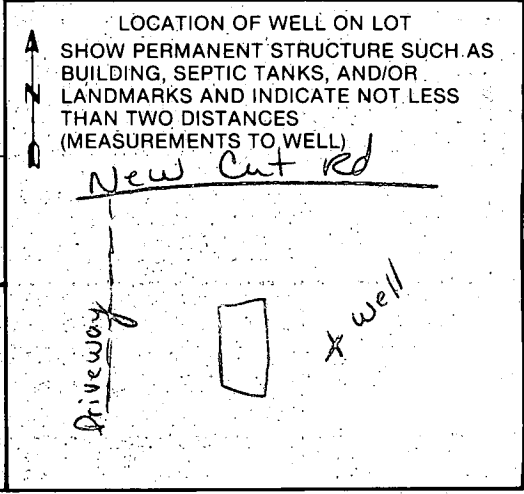 LOCATION OF WELL ON LOT
SHOW PERMANENT STRUCTURE SUCH AS
BUILDING, SEPTIC TANKS, AND/OR
N LANDMARKS AND INDICATE NOT LESS
THAN TWO DISTANCES
(MEASUREMENTS TO WELL)
New Cut Rd
Driveway
X well